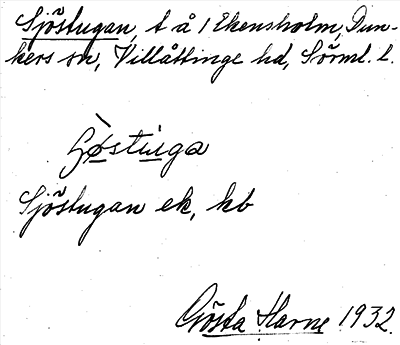 Sjöstugan, t å 1 Ekensholm, Dun-
kers sn, Villåttinge hd, Sörml. l.
Sjöstugan ek, kb
Gösta Harne 1932.